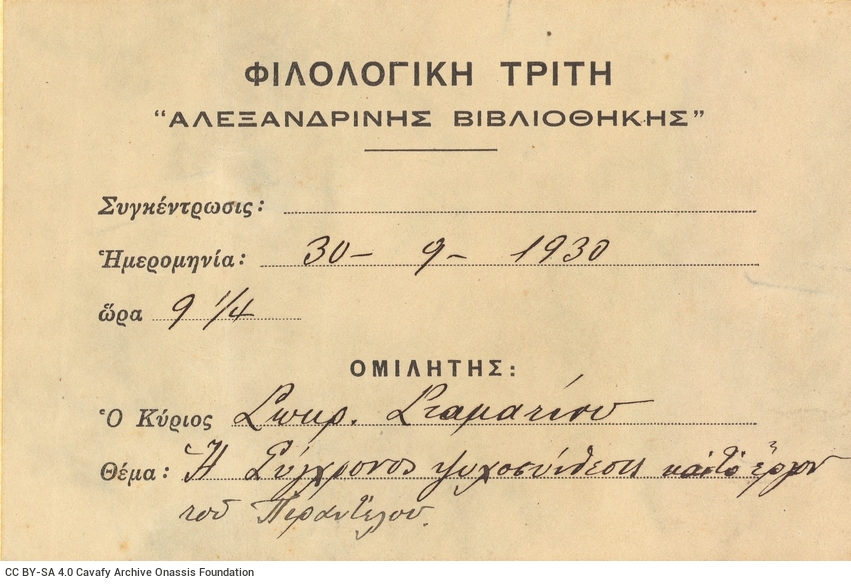 ΦΙΛΟΛΟΓΙΚΗ ΤΡΙΤΗ
“ΑΛΕΞΑΝΔΡΙΝΗΣ ΒΙΒΛΙΟΘΗΚΗΣ”
Συγκέντρωσις:
Ἡμερομηνία: 30 – 9 – 1930
ὥρα 9 1/4
ΟΜΙΛΗΤΗΣ:
Ὁ Κύριος Σωκρ. Σταματίου
Θέμα: Ἡ Σύγχρονος ψυχοσύνθεσις καὶ τὸ ἔργον
τοῦ Πιραντέλου.
CC BY-SA 4.0 Cavafy Archive Onassis Foundation